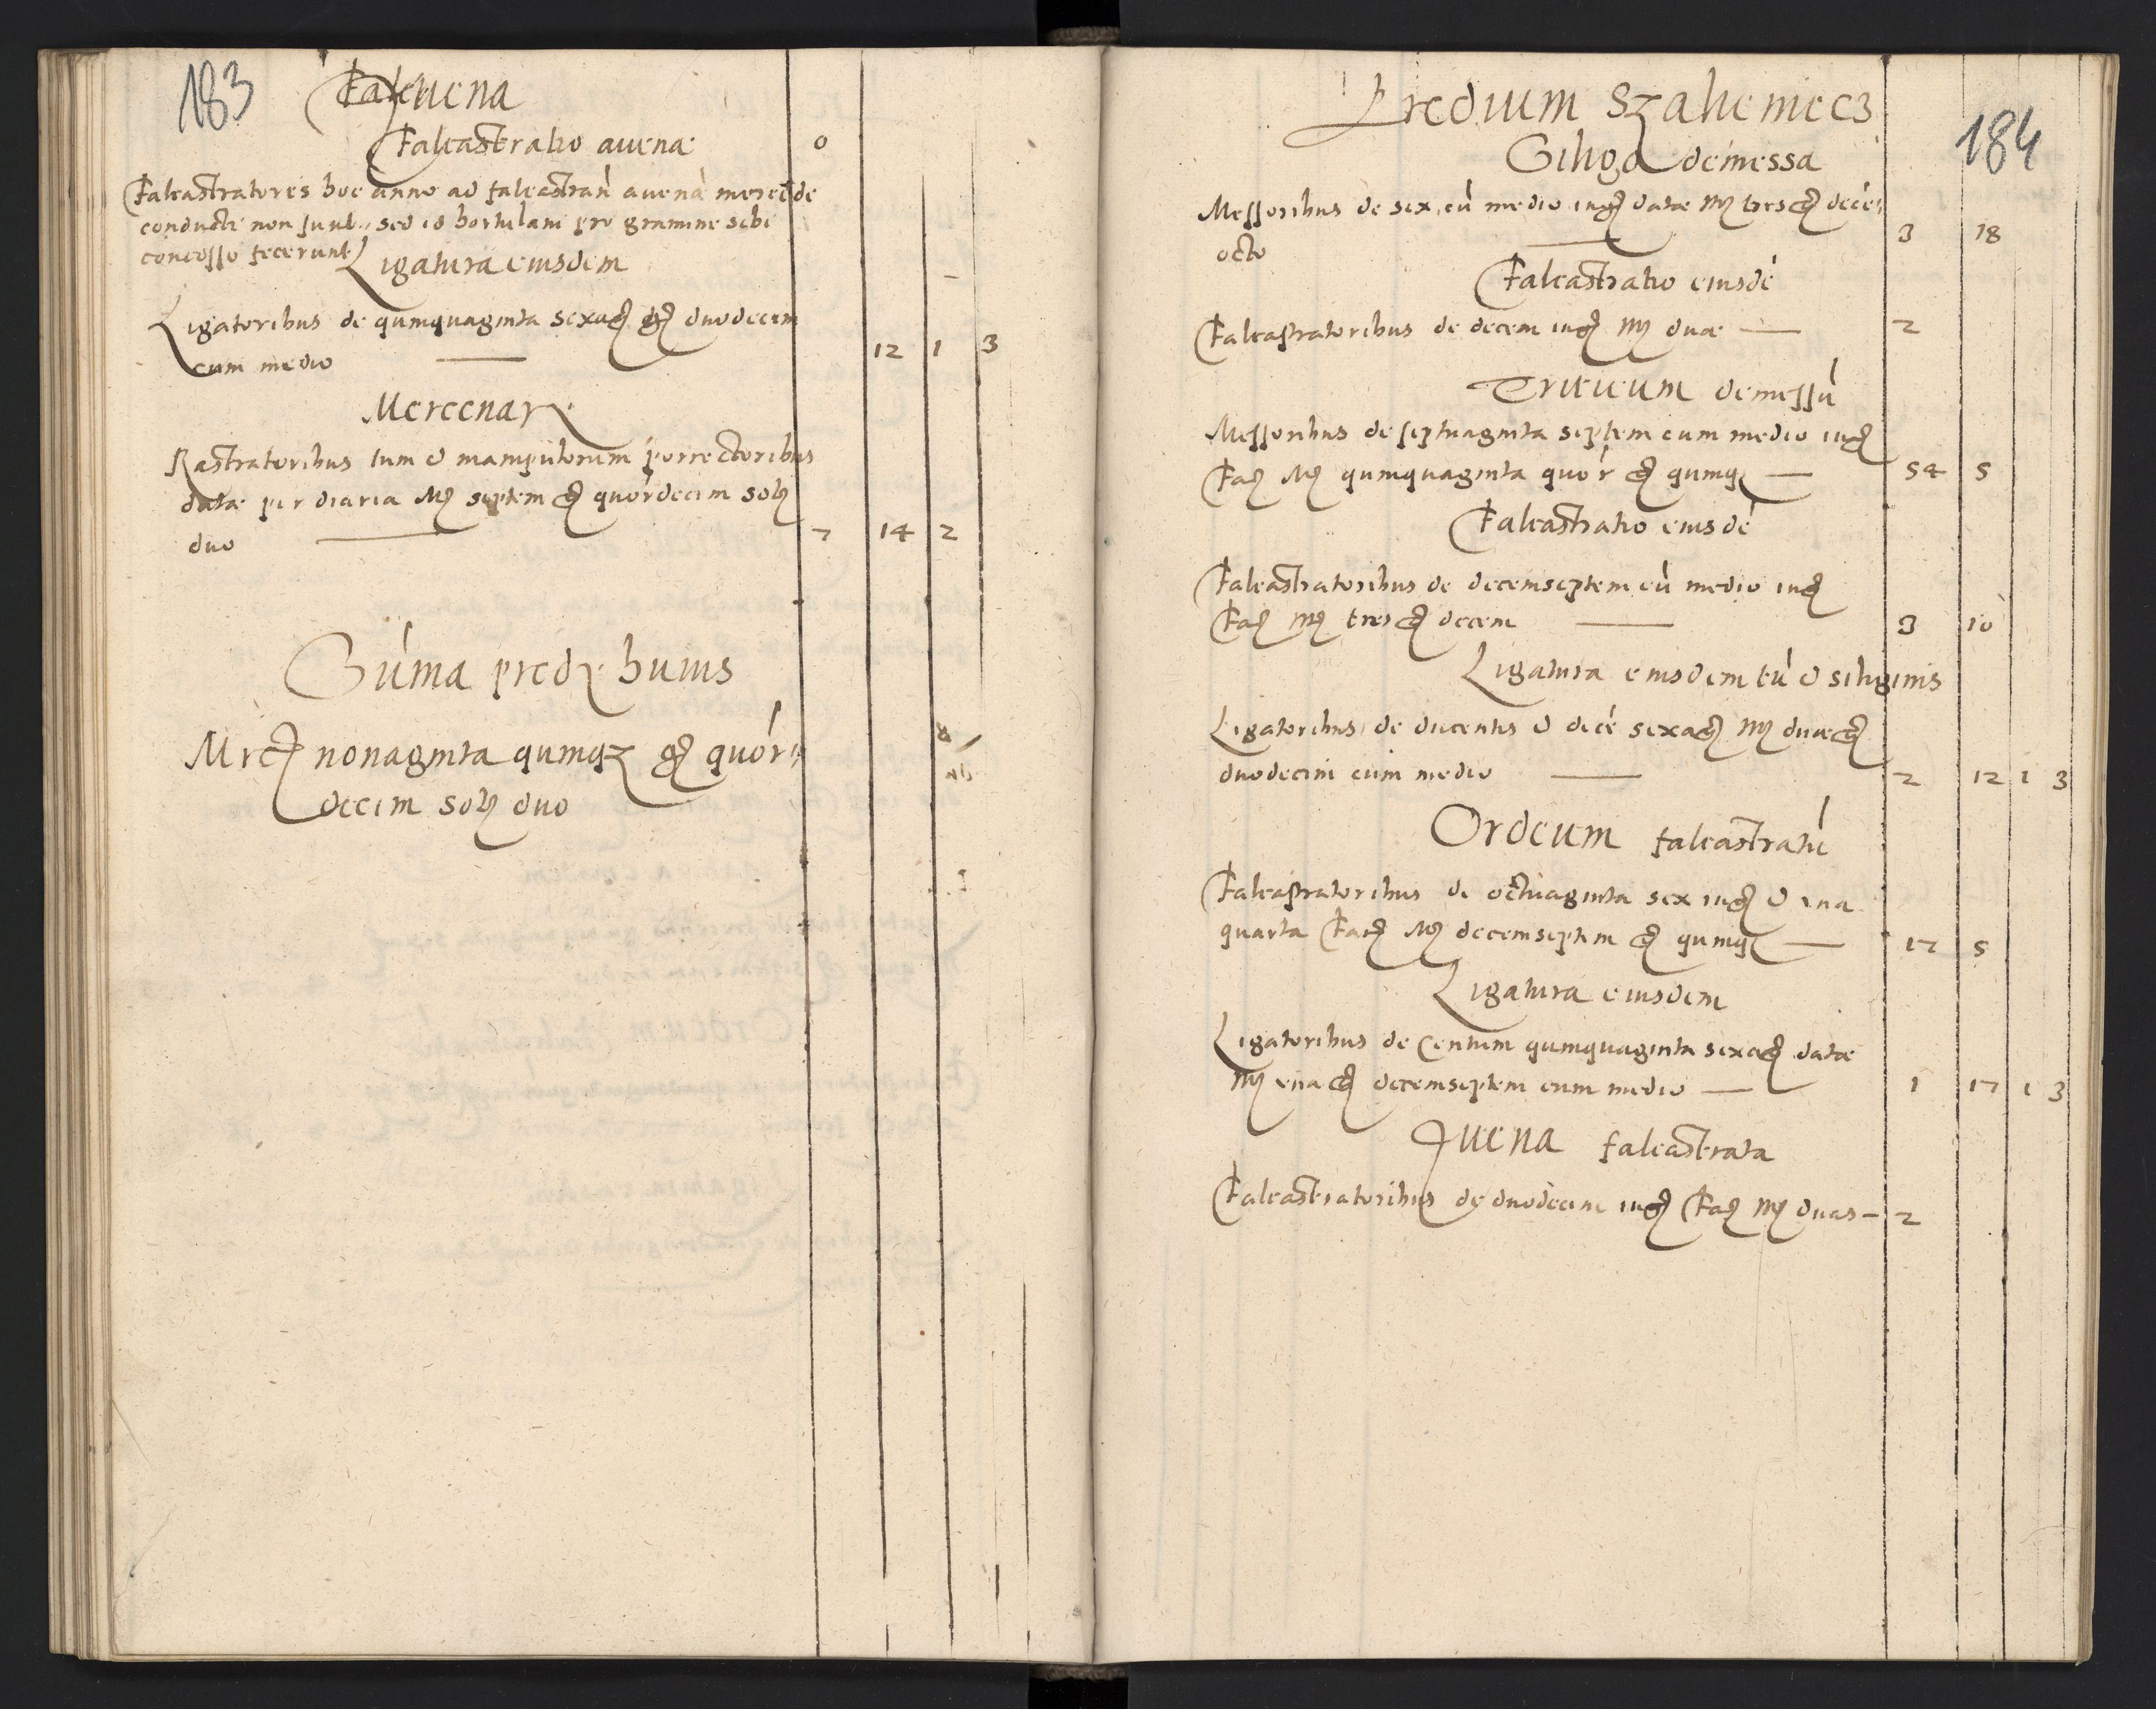 183
Auena
Falcastratio auenæ 0
Falcastratores hoc anno ad falcastran auenā mercede
conducti non sunt, sed id hortulani pro gramine sibi
concesso fecerunt
Ligatura eiusdem
Ligatoribus de quinquaginta sexag gr duodecim
cum medio 12 1 3
Mercenary
Rastratoribus tum et manipulorum porrectoribus
datæ per diaria Mr septem gr quordecim sol
duo 7 14 2
Sūma predy huius
Mrc nonaginta quinq gr quor=
decim sol duo
184
Predium Szaleniecz
Siligo demessa
Messoribus de sex cū medio iug datæ Mr tres gr decē=
octo 3 18
Falcastratio eiusdē
Falcastratoribus de decem iug Mr duæ 2
Triticum demessū
Messoribus de septuaginta septem cum medio iug
Fac Mr quinquaginta quor gr quinq 54 5
Falcastratio eiusdē
Falcastratoribus de decemseptem cū medio iug
Fac Mr tres gr decem 3 10
Ligatura eiusdem tū et siliginis
Ligatoribus de ducentis et decē sexag Mr duæ gr
duodecim cum medio 2 12 1 3
Ordeum falcastratū
Falcastratoribus de octuaginta sex iug et una
quarta Fac Mr decemseptem gr quinq 17 5
Ligatura eiusdem
Ligatoribus de Centum quinquaginta sexag datæ
Mr una gr decemseptem cum medio 1 17 1 3
Auena falcastrata
Falcastratoribus de duodecim iug Fac Mr duas 2